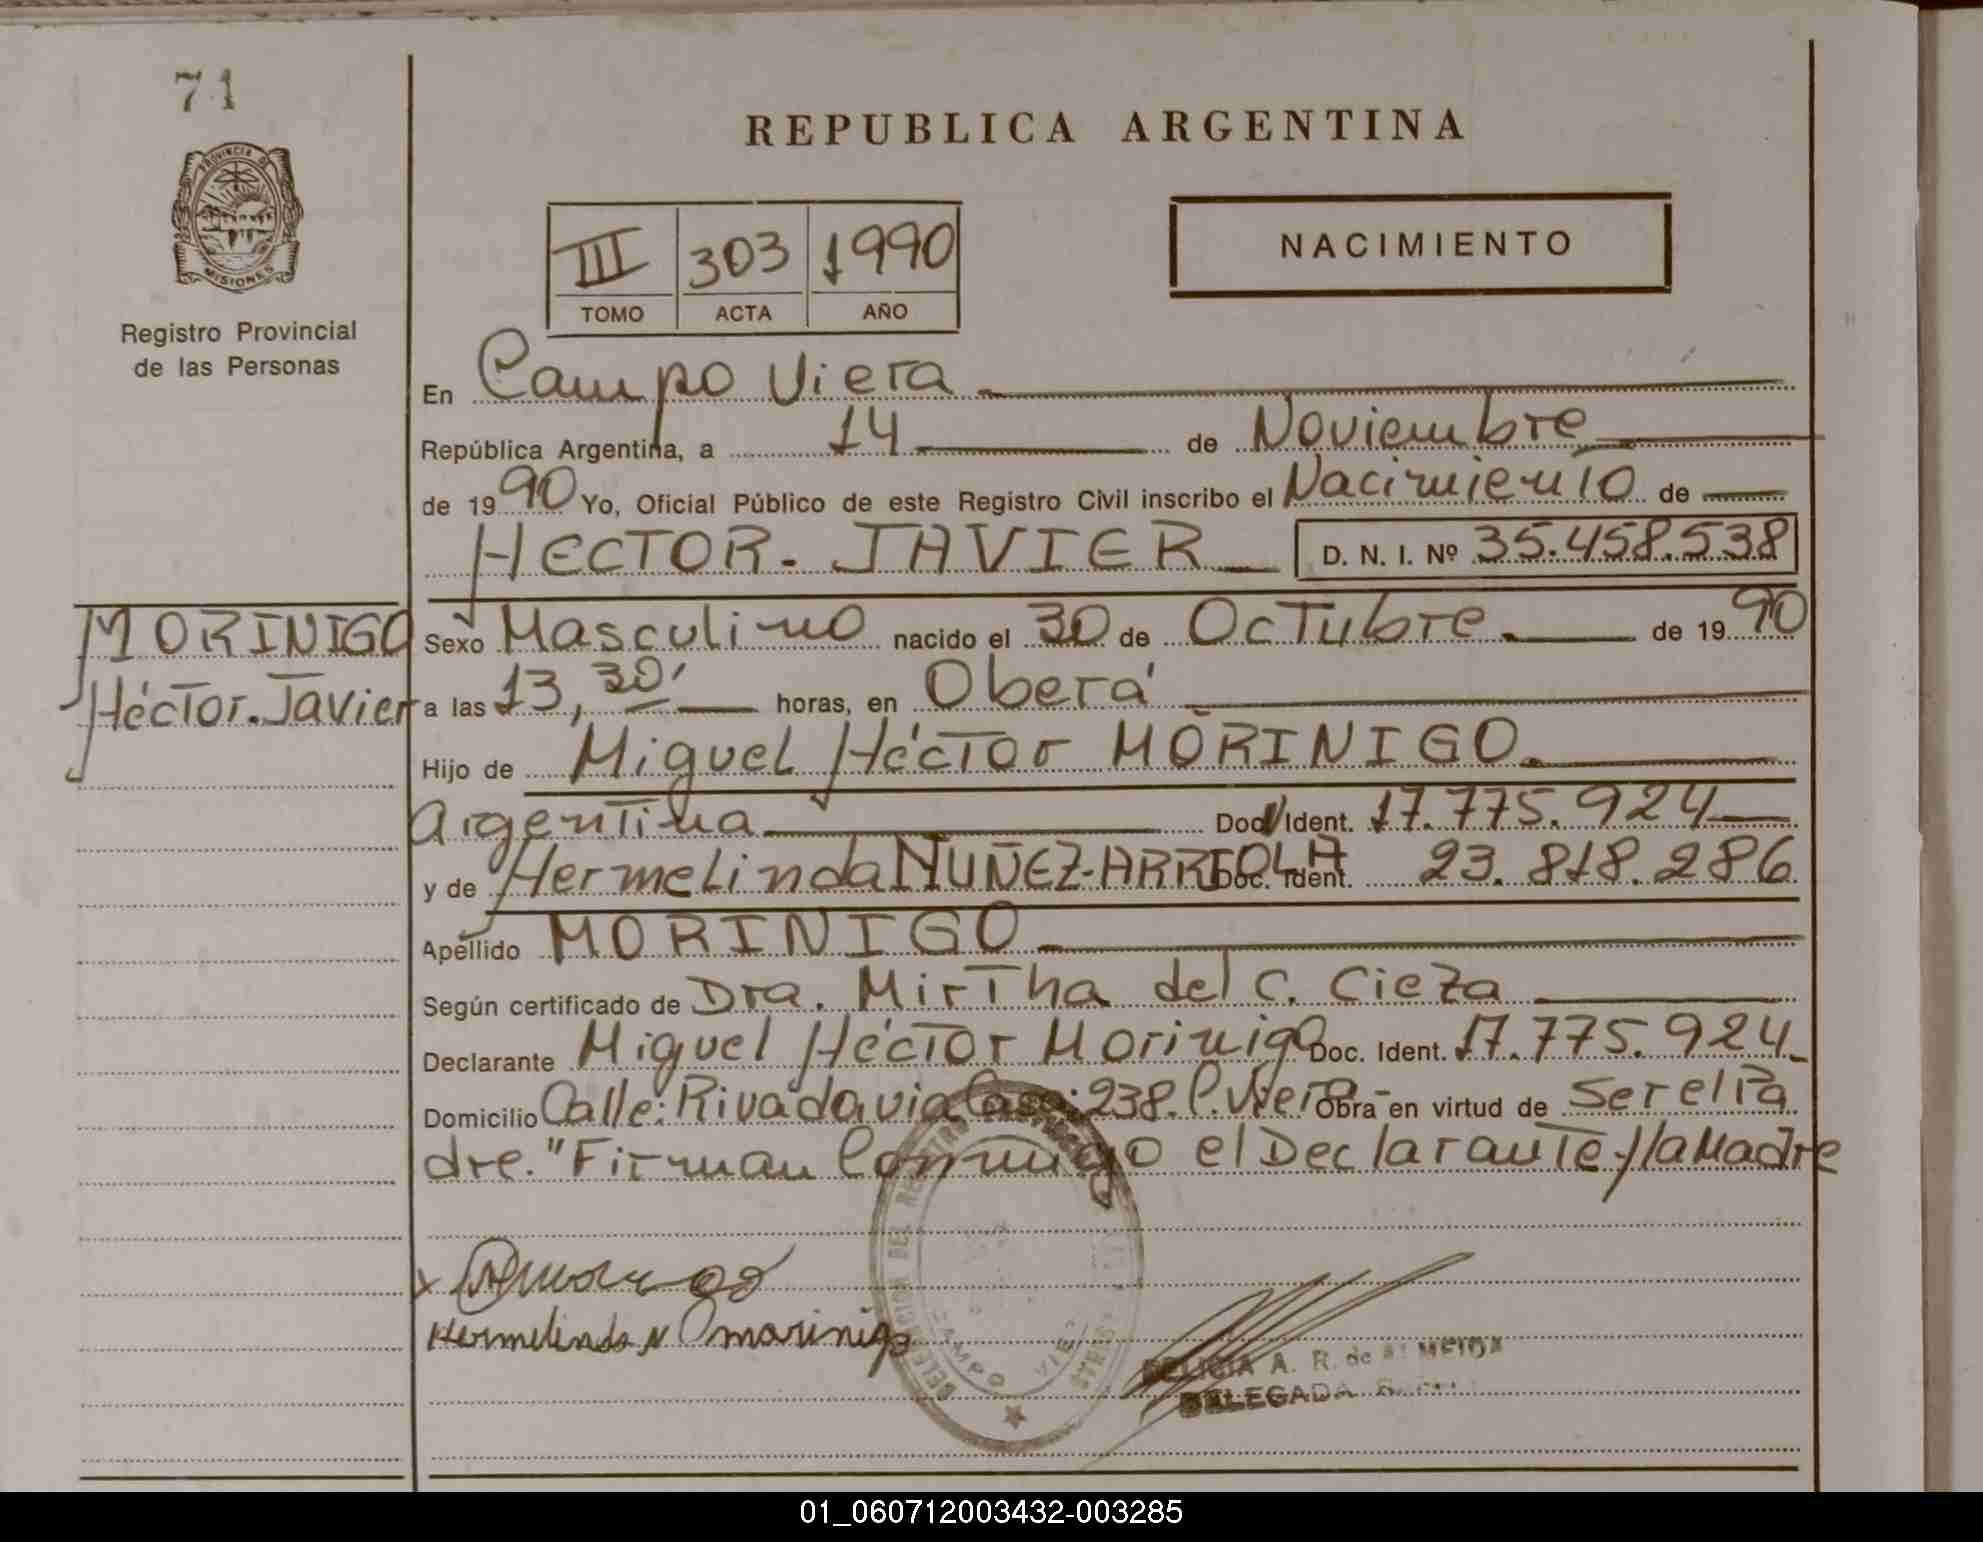 71
REPUBLICA ARGENTINA
PROVINCIA DE
MISIONES
Registro Provincial
de las Personas
III 303 1990
TOMO ACTA AÑO
NACIMIENTO
En Campo Viera
República Argentina, a 14 de Noviembre
de 1990 Yo, Oficial Público de este Registro Civil inscribo el Nacimiento de
HECTOR. JAVIER D. N. I. Nº 35.458.538
MORINIGO
Héctor. Javier
Sexo Masculino nacido el 30 de Octubre de 1990
a las 13,30' horas, en Oberá
Hijo de Miguel Héctor MORINIGO.
Argentina Doc. Ident. 17.775.924
y de Hermelinda NUÑEZ-ARREOLA Doc. Ident. 23.818.286
Apellido MORINIGO
Según certificado de Dra. Mirtha del C. Cieza
Declarante Miguel Héctor Morinigo Doc. Ident. 17.775.924
Domicilio Calle: Rivadavia Casa: 238. C. Viera - Obra en virtud de Ser el Pa
dre. "Firman Conmigo el Declarante y la Madre
Hermelinda N morinigo
CAMPO VIE
A. R. de ALMEIDA
DELEGADA
01_060712003432-003285